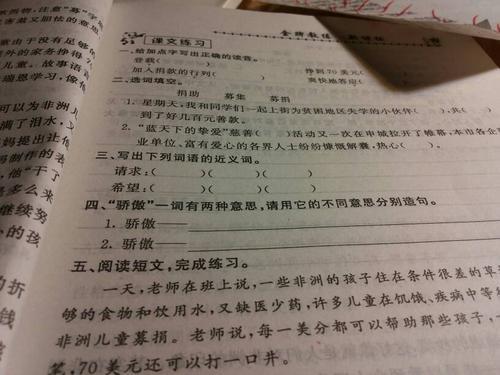 课文练习
金牌教练
一、给加点字写出正确的读音。
登载( )
挣到70美元(
加入捐款的行列( )
爽快地答应(
二、选词填空。
捐助 募集 募捐
1. 星期天,我和同学们一起上街为贫困地区失学的小伙伴( ),共( )
到了好几百元善款。
2. “蓝天下的挚爱”慈善( )活动又一次在申城拉开了帷幕,本市各企
业单位、富有爱心的各界人士纷纷慷慨解囊,热心( )。
三、写出下列词语的近义词。
请求:( )( )( )
希望:( )( )( )
四、“骄傲”一词有两种意思,请用它的不同意思分别造句。
1. 骄傲——
2. 骄傲——
五、阅读短文,完成练习。
一天,老师在班上说,一些非洲的孩子住在条件很差的草
够的食物和饮用水,又缺医少药,许多儿童在饥饿、疾病中等
非洲儿童募捐。老师说,每一美分都可以帮助那些孩子,一
笔,70美元还可以打一口井。
意思
由于没有足够
外的家务挣得
儿童。故事语言
瑞恩学习,像他
可以为非洲儿
满了泪水,
妈提出让他
制作的表
他“干了
是多么来
继续努
的孩
的折
钱